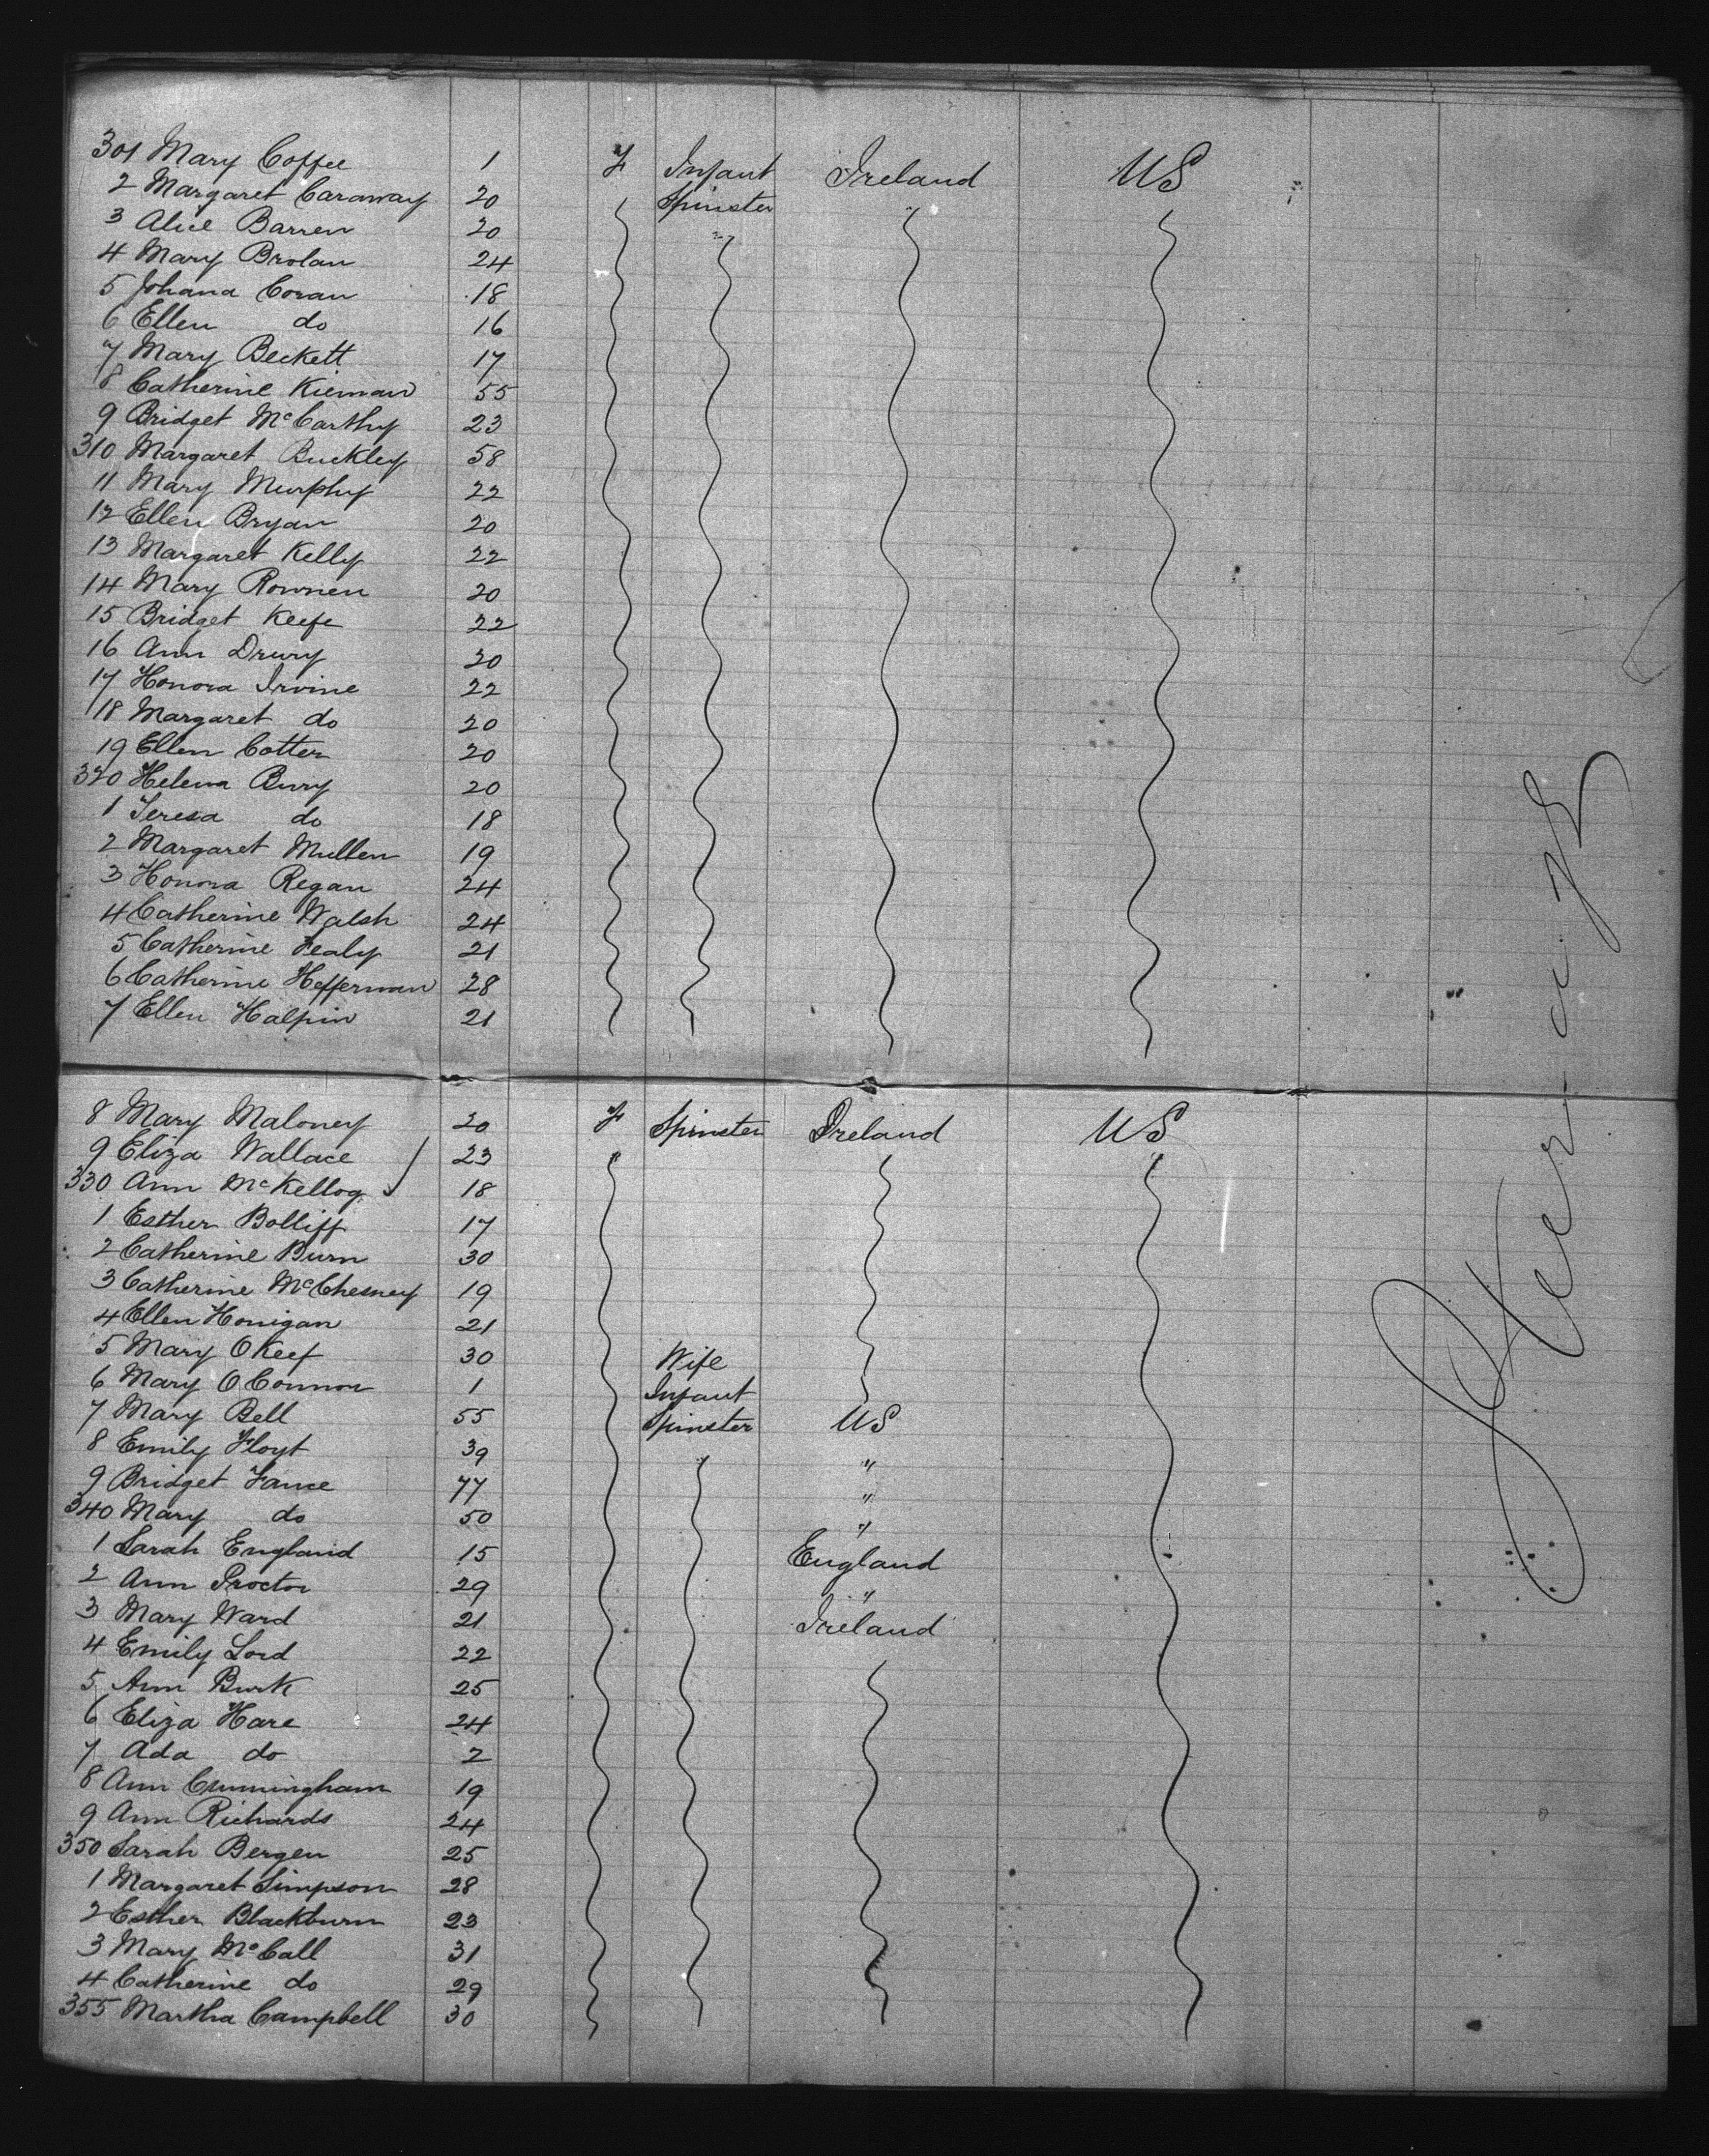 301 Mary Coffee 1 F Infant Ireland US
2 Margaret Caraway 20 Spinster "
3 Alice Barren 20 "
4 Mary Brolan 24
5 Johana Coran 18
6 Ellen do 16
7 Mary Beckett 17
8 Catherine Kiernan 55
9 Bridget McCarthy 23
310 Margaret Buckley 58
11 Mary Murphy 22
12 Ellen Bryan 20
13 Margaret Kelly 22
14 Mary Rownen 20
15 Bridget Keefe 22
16 Ann Drury 20
17 Honora Irvine 22
18 Margaret do 20
19 Ellen Cotter 20
320 Helena Bury 20
1 Teresa do 18
2 Margaret Mullen 19
3 Honora Regan 24
4 Catherine Walsh 24
5 Catherine Fealy 21
6 Catherine Hefferman 28
7 Ellen Halpin 21
8 Mary Maloney 20 F Spinster Ireland US
9 Eliza Wallace 23 "
330 Ann McKellog 18
1 Esther Bolliff 17
2 Catherine Burn 30
3 Catherine McChesney 19
4 Ellen Honigan 21
5 Mary OKeef 30 Wife
6 Mary OConnor 1 Infant
7 Mary Bell 55 Spinster US
8 Emily Floyt 39 "
9 Bridget Fance 77 "
340 Mary do 50 "
1 Sarah England 15 England
2 Ann Proctor 29 "
3 Mary Ward 21 Ireland
4 Emily Lord 22
5 Ann Burk 25
6 Eliza Hare 24
7 Ada do 2
8 Ann Cunningham 19
9 Ann Richards 24
350 Sarah Bergen 25
1 Margaret Simpson 28
2 Esther Blackburn 23
3 Mary McCall 31
4 Catherine do 29
355 Martha Campbell 30